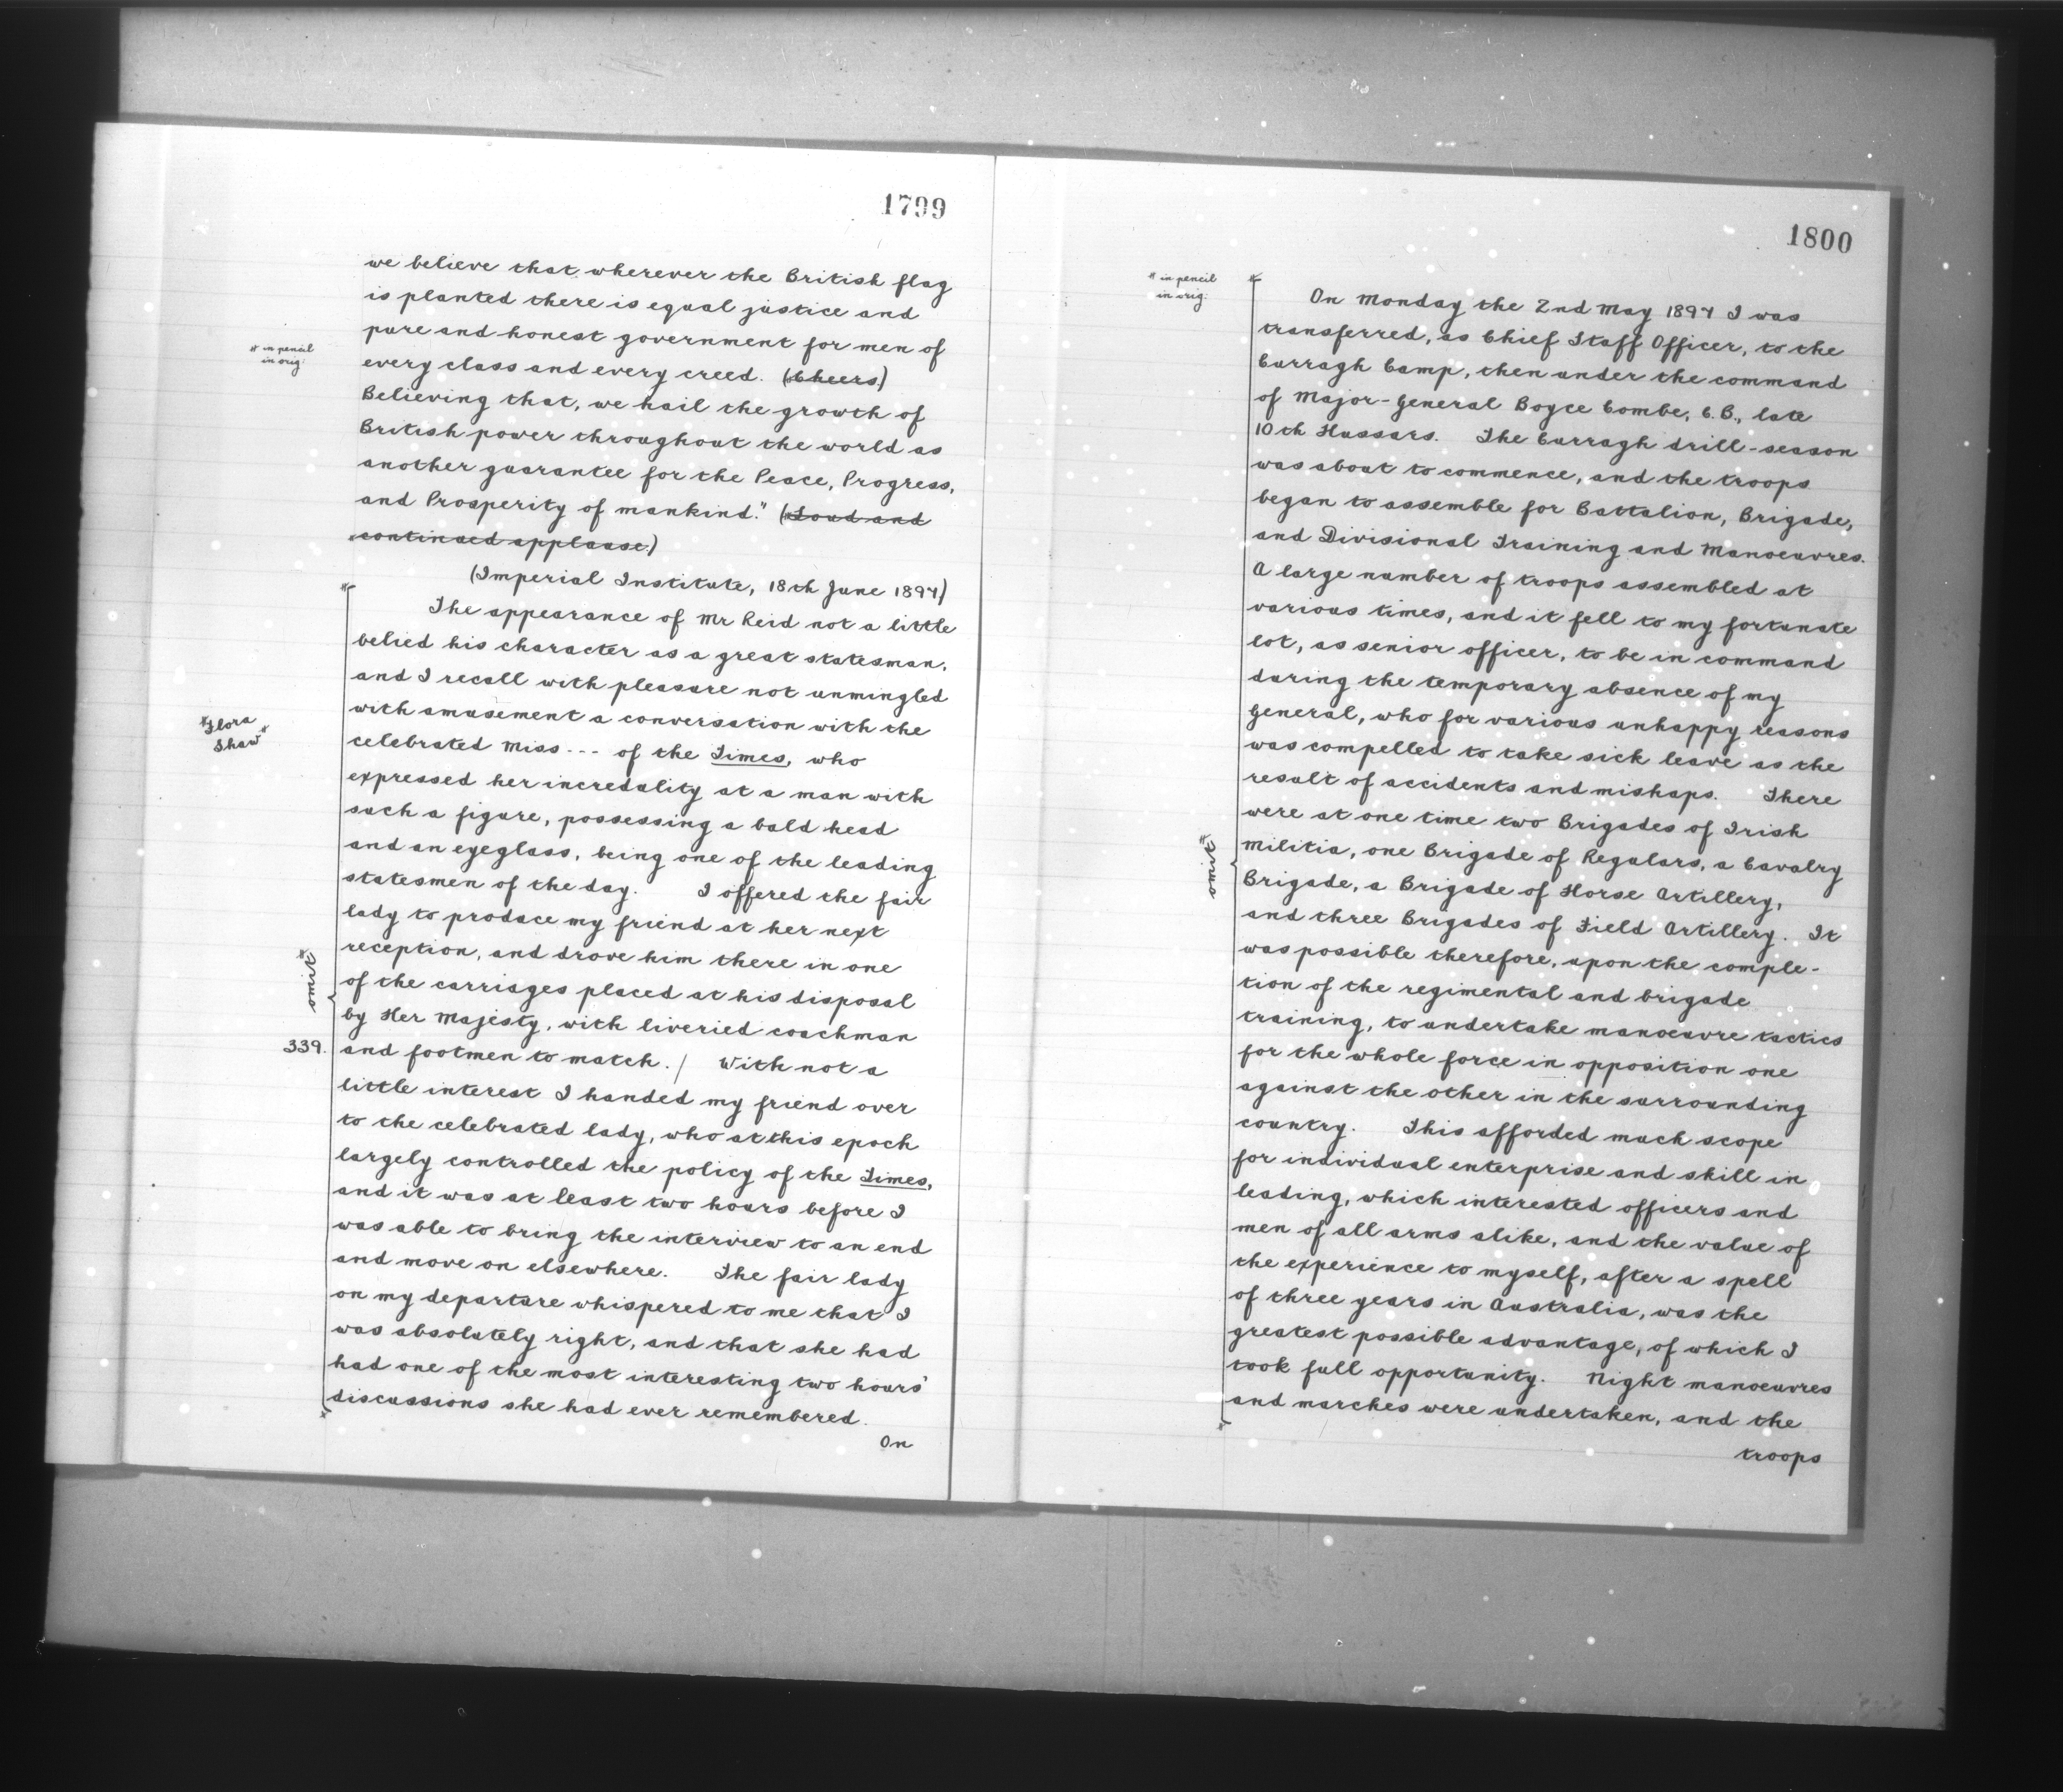 1799
we believe that wherever the British flag
is planted there is equal justice and
pure and honest government for men of
* in pencil
in orig:
every class and every creed. (Cheers)
Believing that, we hail the growth of
British power throughout the world as
another guarantee for the Peace, Progress,
and Prosperity of mankind." (Loud and
continued applause)
(Imperial Institute, 18th June 1897)
The appearance of Mr Reid not a little
belied his character as a great statesman,
and I recall with pleasure not unmingled
with amusement a conversation with the
*Flora
Shaw*
celebrated Miss --- of the Times, who
expressed her incredulity at a man with
such a figure, possessing a bald head
and an eyeglass, being one of the leading
statesmen of the day. I offered the fair
lady to produce my friend at her next
reception, and drove him there in one
omit*
of the carriages placed at his disposal
by Her Majesty, with liveried coachman
339. and footmen to match. / With not a
little interest I handed my friend over
to the celebrated lady, who at this epoch
largely controlled the policy of the Times,
and it was at least two hours before I
was able to bring the interview to an end
and move on elsewhere. The fair lady
on my departure whispered to me that I
was absolutely right, and that she had
had one of the most interesting two hours'
discussions she had ever remembered.
On
1800
* in pencil
in orig:
On Monday the 2nd May 1897 I was
transferred, as Chief Staff Officer, to the
Curragh Camp, then under the command
of Major-General Boyce Combe, C.B., late
10th Hussars. The Curragh drill-season
was about to commence, and the troops
began to assemble for Battalion, Brigade,
and Divisional Training and Manoeuvres.
A large number of troops assembled at
various times, and it fell to my fortunate
lot, as senior officer, to be in command
during the temporary absence of my
General, who for various unhappy reasons
was compelled to take sick leave as the
result of accidents and mishaps. There
were at one time two Brigades of Irish
omit*
Militia, one Brigade of Regulars, a Cavalry
Brigade, a Brigade of Horse Artillery,
and three Brigades of Field Artillery. It
was possible therefore, upon the comple-
tion of the regimental and brigade
training, to undertake manoeuvre tactics
for the whole force in opposition one
against the other in the surrounding
country. This afforded much scope
for individual enterprise and skill in
leading, which interested officers and
men of all arms alike, and the value of
the experience to myself, after a spell
of three years in Australia, was the
greatest possible advantage, of which I
took full opportunity. Night manoeuvres
and marches were undertaken, and the
troops